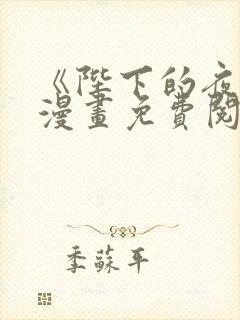 《陛下的夜
漫畫免費閱
季蘇平